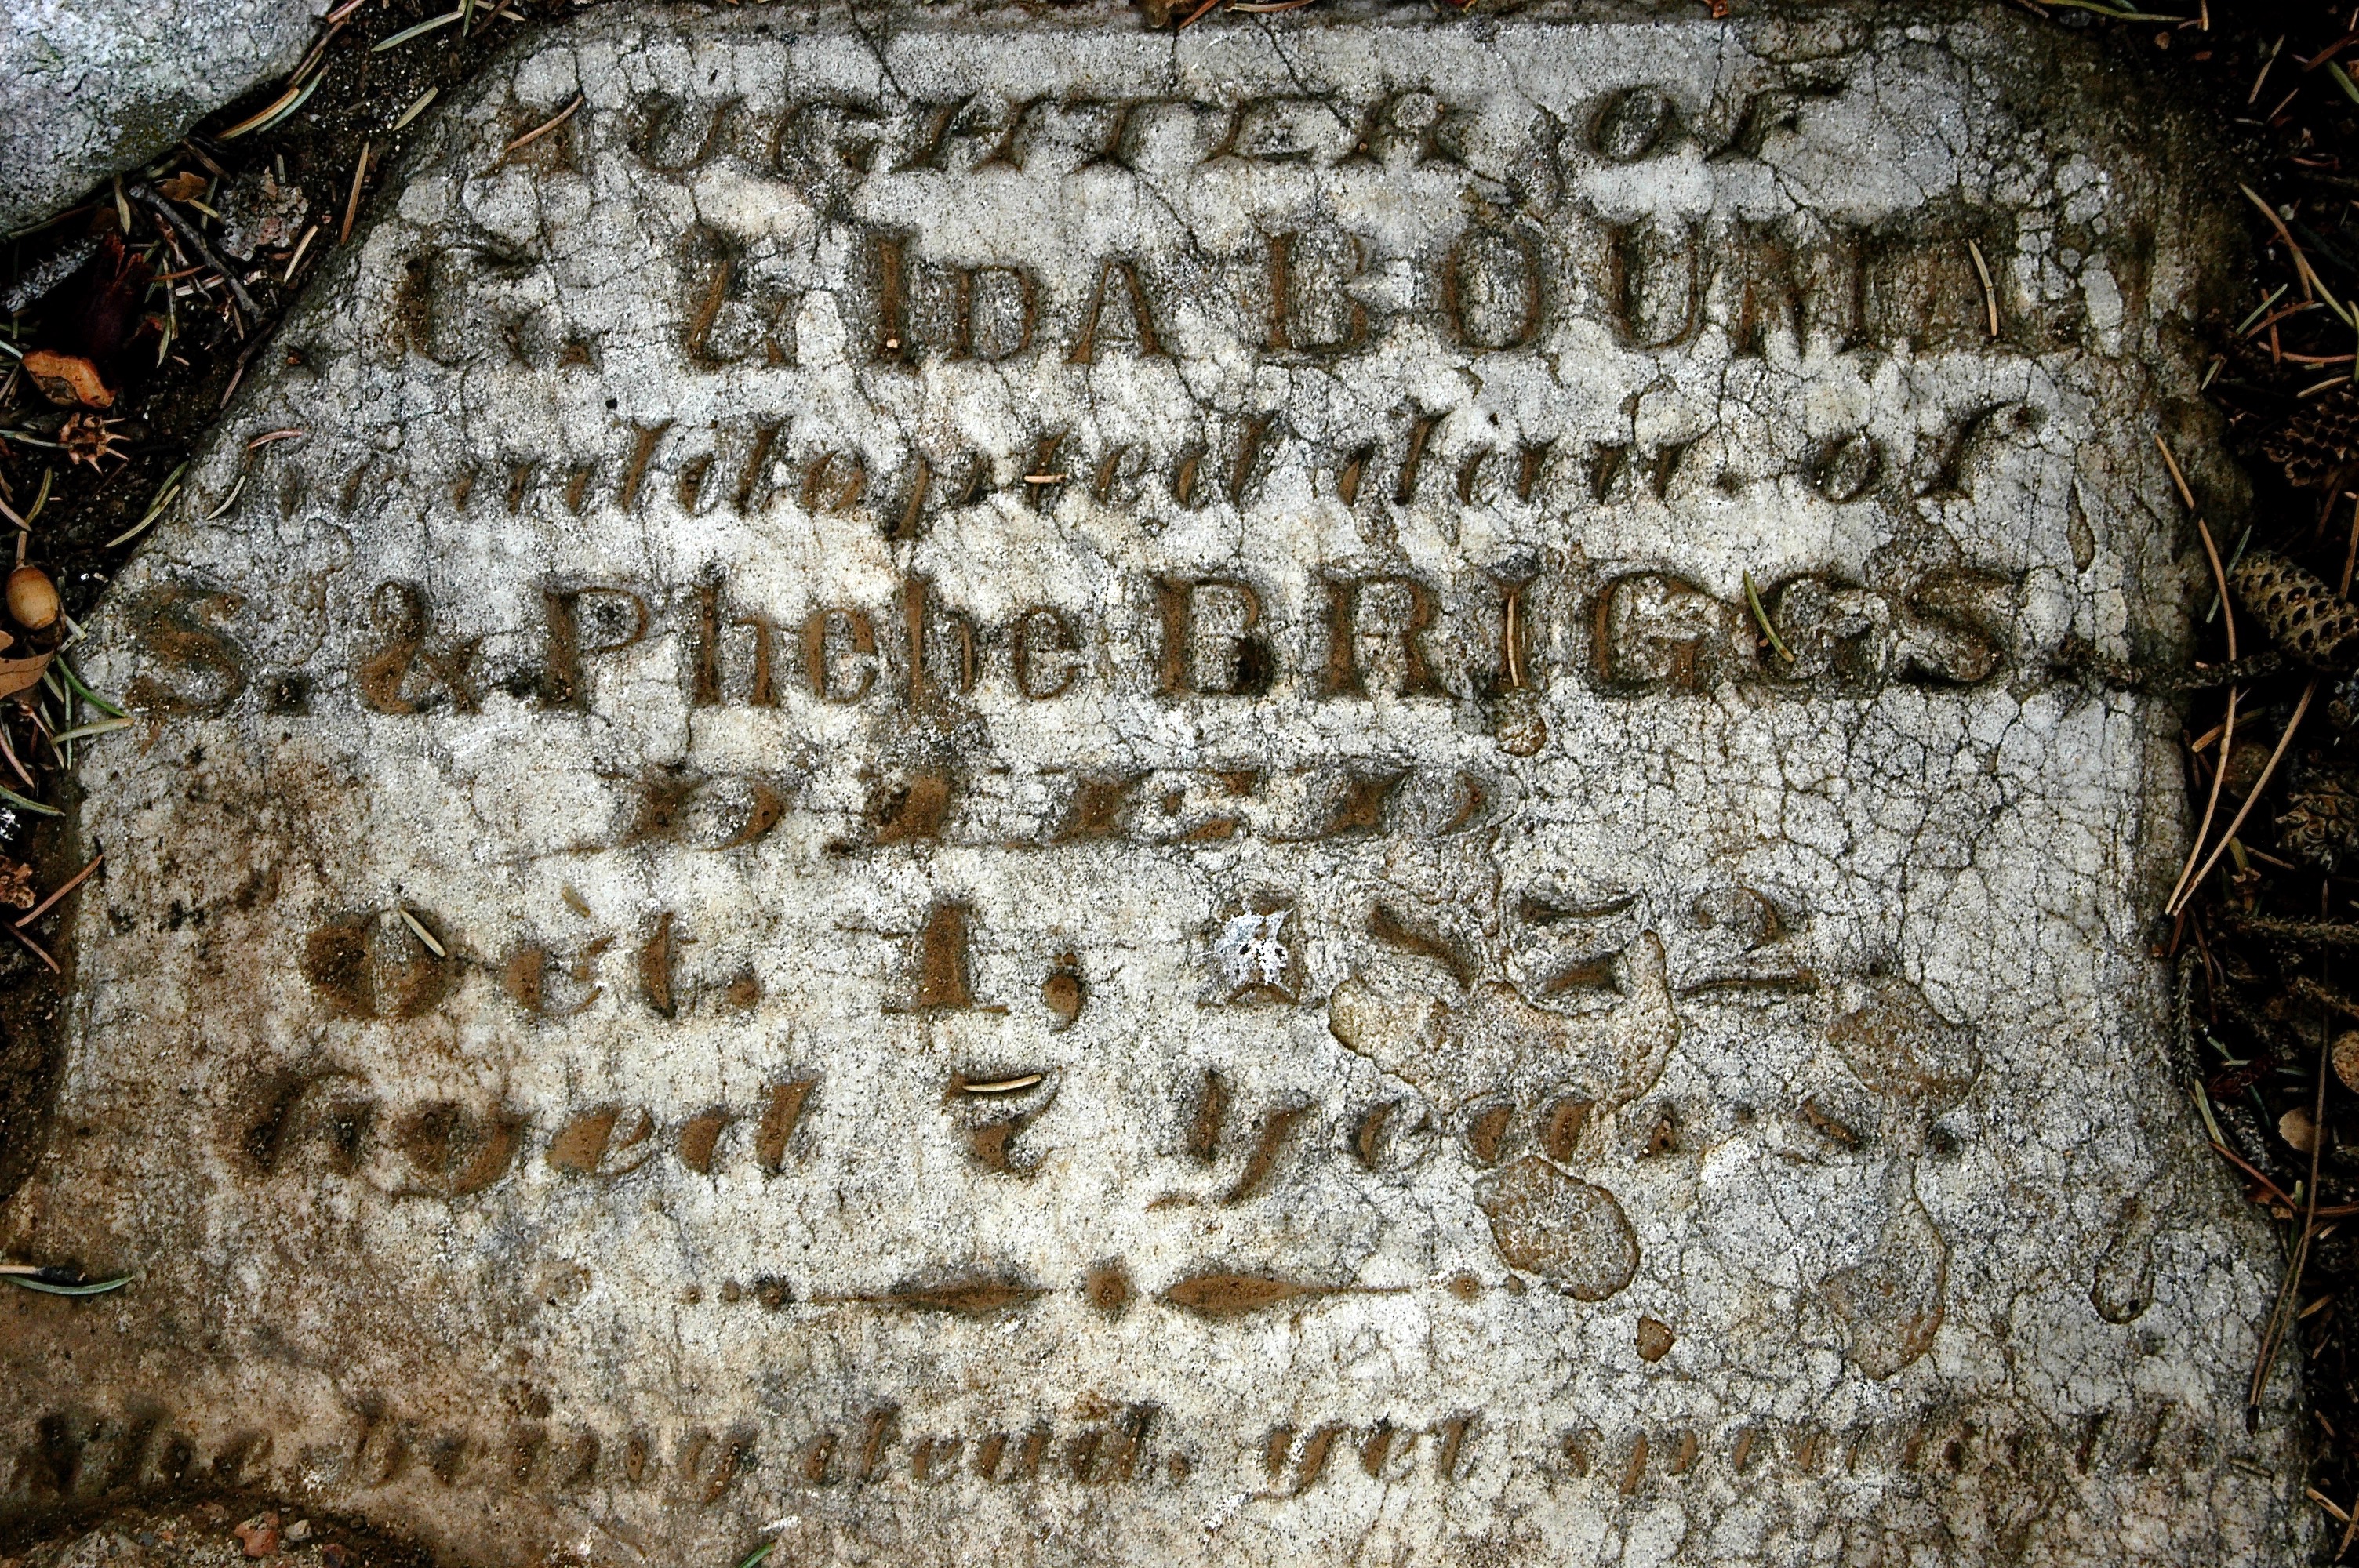 AUGHTER OF
& IDA
adopted dau. of
S. & Phebe BRIGGS
DIED
Oct. 1, 1872
Aged 7 years.
She being dead, yet speaketh